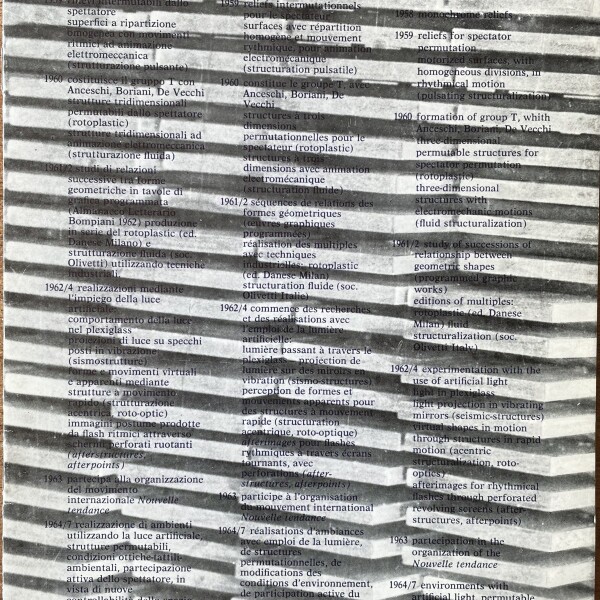 spettatore
superfici a ripartizione
omogenea con movimenti
ritmici ad animazione
elettromeccanica
(strutturazione pulsante)
1960 costituisce il gruppo T con
Anceschi, Boriani, De Vecchi
strutture tridimensionali
permutabili dallo spettatore
(rotoplastic)
strutture tridimensionali ad
animazione elettromeccanica
(strutturazione fluida)
1961/2 studi di relazioni
successive tra forme
geometriche in tavole di
grafica programmata
(Almanacco Letterario
Bompiani 1962) produzione
in serie del rotoplastic (ed.
Danese Milano) e
strutturazione fluida (soc.
Olivetti) utilizzando tecniche
industriali
1962/4 realizzazioni mediante
l'impiego della luce
artificiale:
comportamento della luce
nel plexiglass
proiezioni di luce su specchi
posti in vibrazione
(sismostrutture)
forme e movimenti virtuali
e apparenti mediante
strutture a movimento
rapido (strutturazione
acentrica, roto-optic)
immagini postume prodotte
da flash ritmici attraverso
schermi perforati ruotanti
(after-structures,
afterpoints)
1963 partecipa alla organizzazione
del movimento
internazionale Nouvelle
tendance
1964/7 realizzazione di ambienti
utilizzando la luce artificiale,
strutture permutabili,
condizioni ottiche-tattili-
ambientali, partecipazione
attiva dello spettatore, in
vista di nuove
1959 reliefs intermutationnels
pour le spectateur
surfaces avec répartition
homogène et mouvement
rythmique, pour animation
electromécanique
(structuration pulsatile)
1960 constitue le groupe T, avec
Anceschi, Boriani, De
Vecchi
structures à trois
dimensions
permutationnelles pour le
spectateur (rotoplastic)
structures à trois
dimensions avec animation
electromécanique
(structuration fluide)
1961/2 séquences de relations des
formes géometriques
(œuvres graphiques
programmées)
réalisation des multiples
avec techniques
industrielles: rotoplastic
(ed. Danese Milan)
structuration fluide (soc.
Olivetti Italie)
1962/4 commence des recherches
et des réalisations avec
l'emploi de la lumière
artificielle:
lumière passant à travers le
plexiglass projection de
lumière sur des miroirs en
vibration (sismo-structures)
perception de formes et
mouvements apparents pour
des structures à mouvement
rapide (structuration
acentrique, roto-optique)
afterimages pour flashes
rythmiques à travers écrans
tournants, avec
perforations (after-
structures, afterpoints)
1963 participe à l'organisation
du mouvement international
Nouvelle tendance
1964/7 réalisations d'ambiances
avec emploi de la lumière,
de structures
permutationnelles, de
modifications des
conditions d'environnement,
de participation active du
1958 monochrome reliefs
1959 reliefs for spectator
permutation
motorized surfaces, with
homogeneous divisions, in
rhythmical motion
(pulsating structuralization)
1960 formation of group T, whith
Anceschi, Boriani, De Vecchi
three-dimensional
permutable structures for
spectator permutation
(rotoplastic)
three-dimensional
structures with
electromechanic motions
(fluid structuralization)
1961/2 study of successions of
relationship between
geometric shapes
(programmed graphic
works)
editions of multiples:
rotoplastic (ed. Danese
Milan) fluid
structuralization (soc.
Olivetti Italy)
1962/4 experimentation with the
use of artificial light
light in plexiglass
light projection in vibrating
mirrors (seismic-structures)
virtual shapes in motion
through structures in rapid
motion (acentric
structuralization, roto-
optics)
afterimages for rhythmical
flashes through perforated
revolving screens (after-
structures, afterpoints)
1963 participation in the
organization of the
Nouvelle tendance
1964/7 environments with
artificial light, permutable